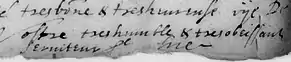 tresbone & tresheureuse vije De
Vostre treshumble & tresobeissant
serviteur